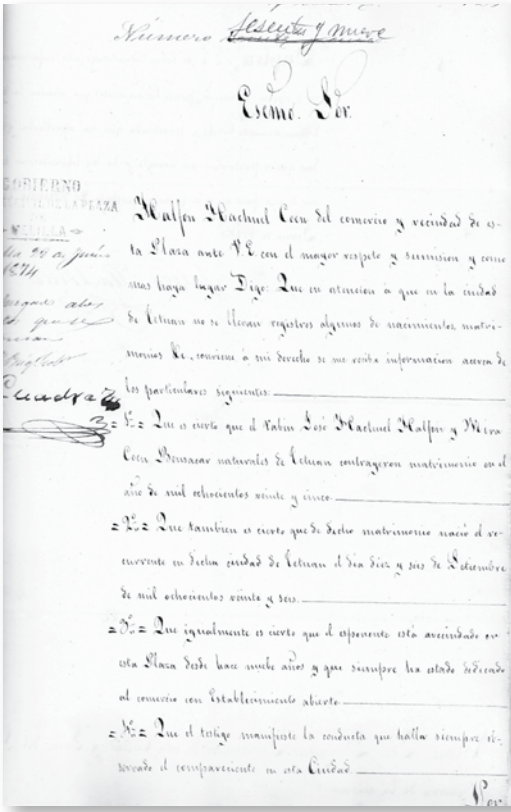 Número sesenta y nueve
Escmo. Sor.
GOBIERNO
MELILLA
1874
Cuadra
Halfon Hachuel Coen del comercio y vecindad de es-
ta Plaza ante V.E. con el mayor respeto y sumision y como
mas haya lugar Digo: Que en atencion á que en la ciudad
de Tetuan no se llevan registros algunos de nacimientos, matri-
monios &c., conviene á mi derecho se me reciba informacion acerca de
los particulares siguientes:
=1º= Que es cierto que el Rabin José Hachuel Halfon y Mira
Coen Bensacar naturales de Tetuan contrageron matrimonio en el
año de mil ochocientos veinte y cinco.
=2º= Que tambien es cierto que de dicho matrimonio nació el re-
currente en dicha ciudad de Tetuan el dia diez y seis de Setiembre
de mil ochocientos veinte y seis.
=3º= Que igualmente es cierto que el esponente está avecindado en
esta Plaza desde hace muchos años y que siempre ha estado dedicado
al comercio con Establecimiento abierto.
=4º= Que el testigo manifieste la conducta que halla siempre ob-
servado el compareciente en esta Ciudad.
Por